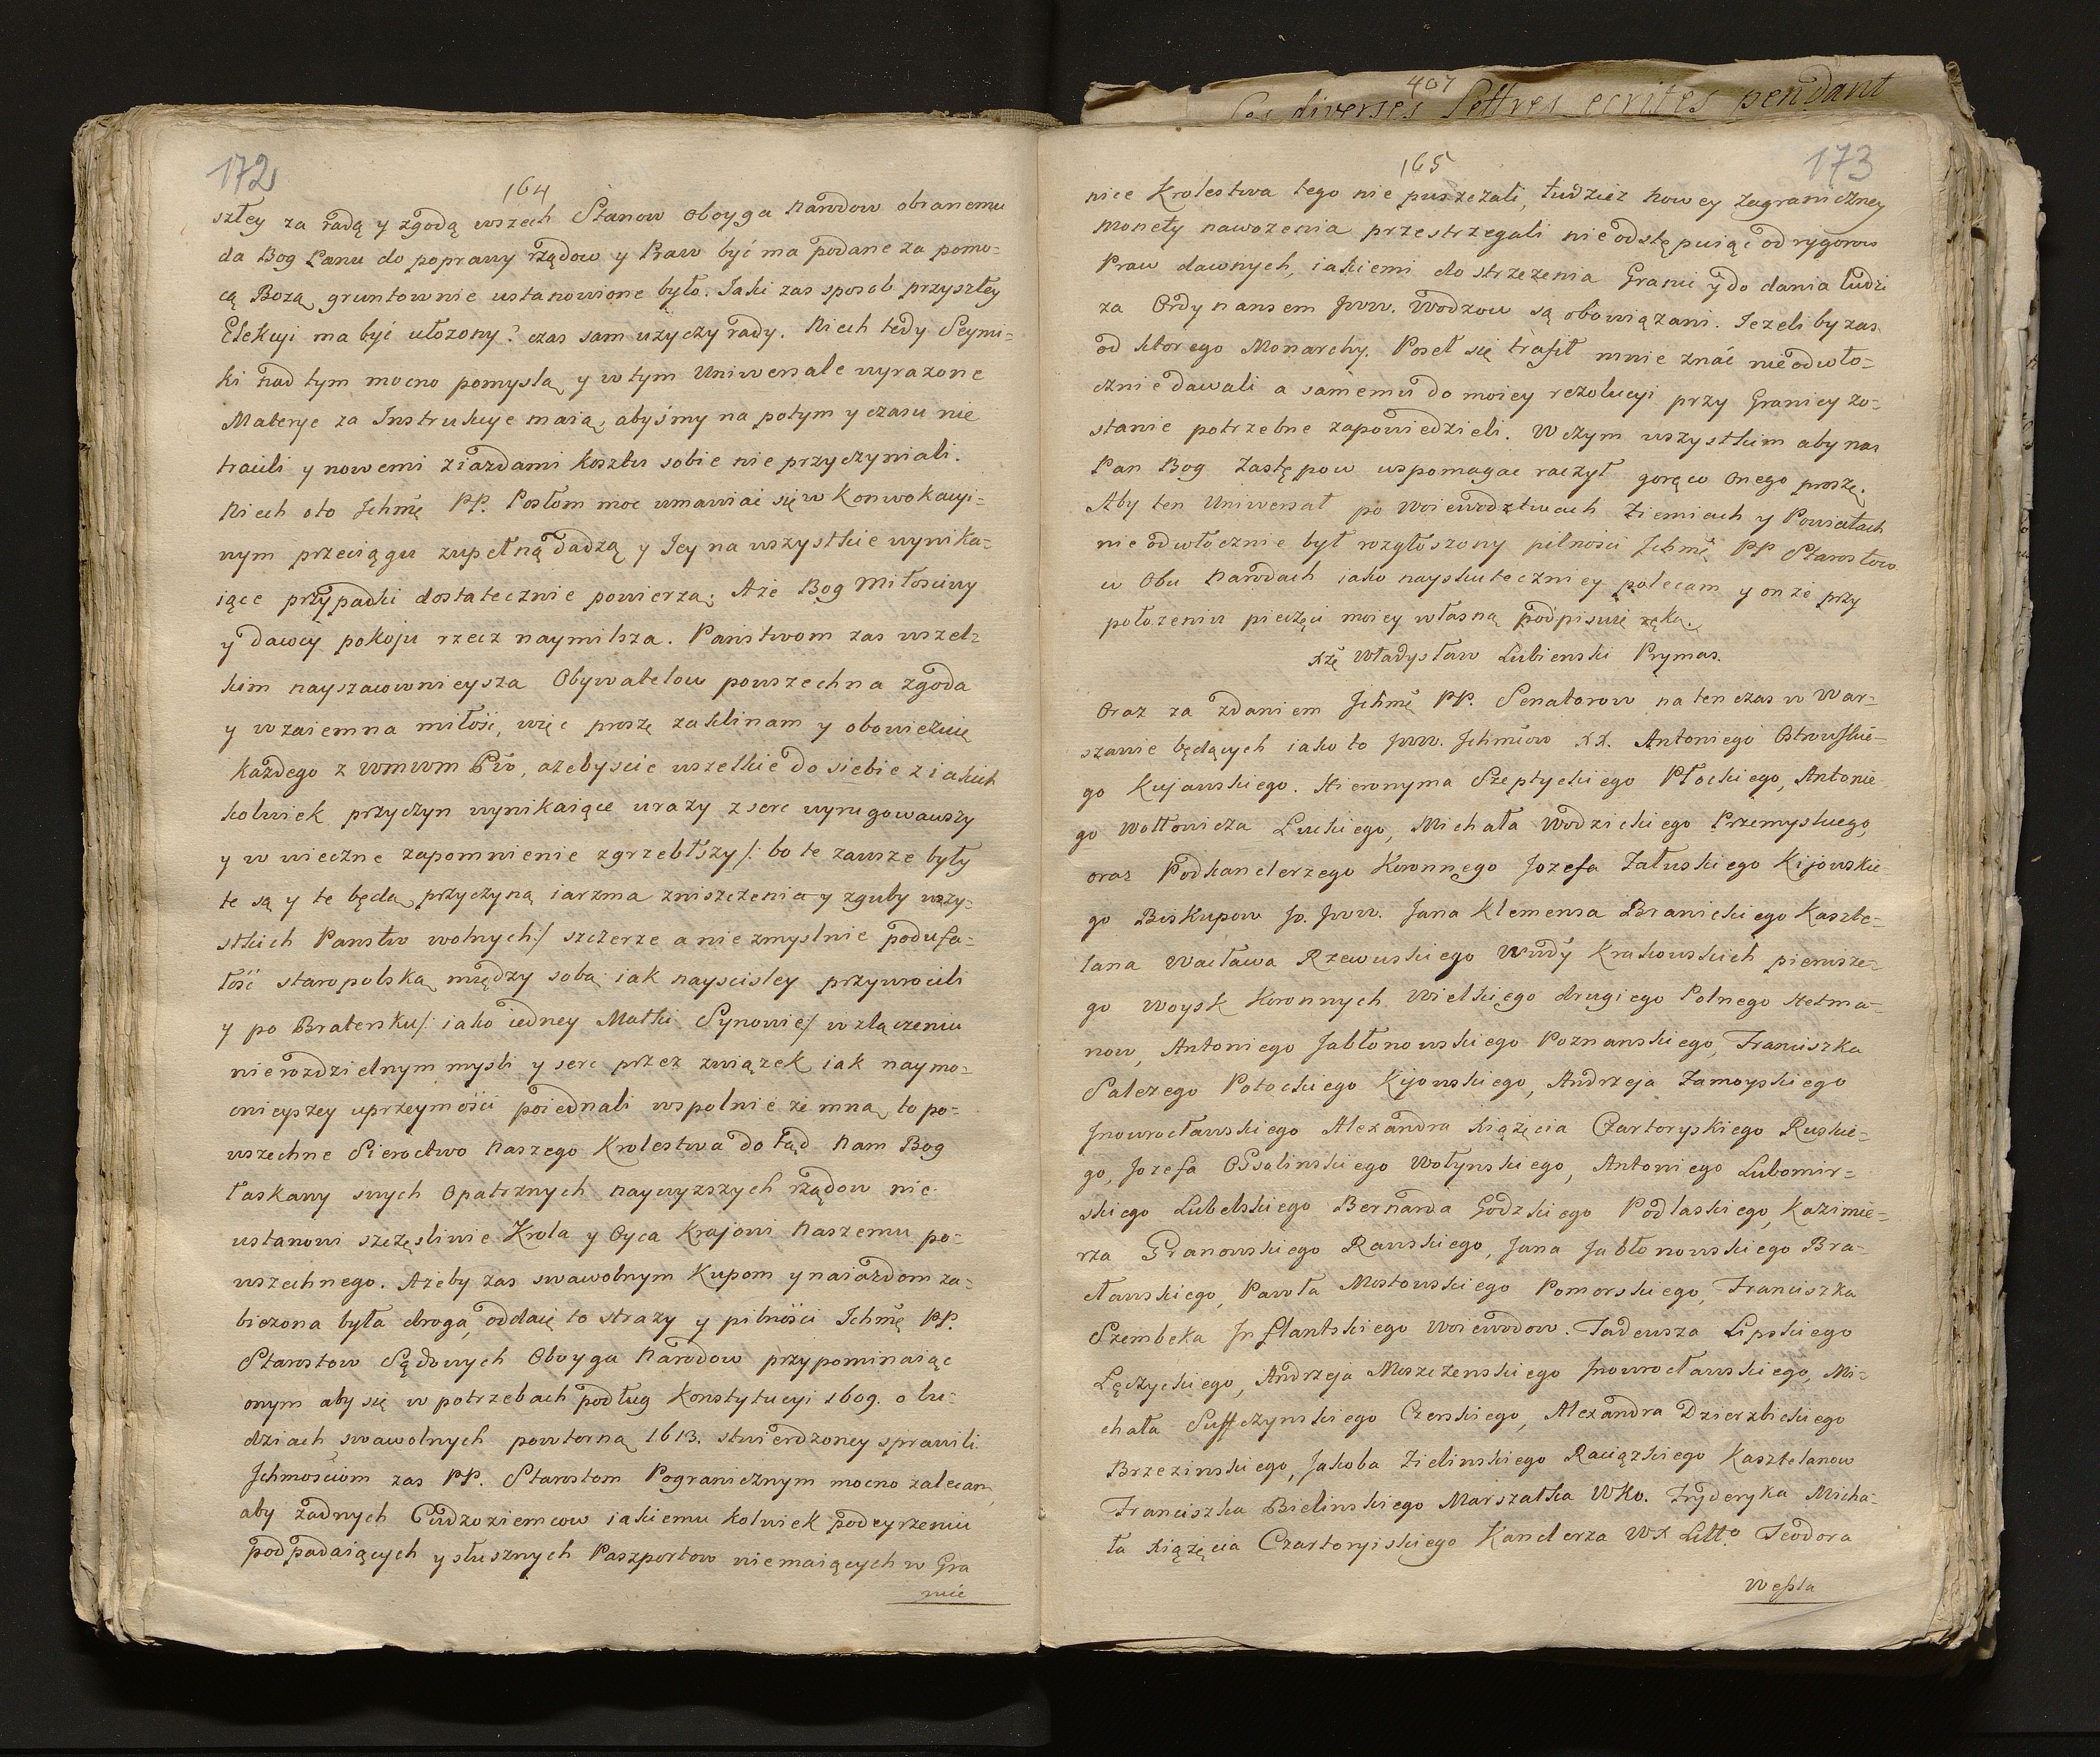 172
164
szłey za radą y zgodą wszech Stanow oboyga Narodow obranemu
da Bog Panu do poprawy rządow y Praw być ma podane za pomo-
cą Bozą gruntownie ustanowione było. Jaki zas sposob przyszłey
Elekcyi ma być ułozony? czas sam uzyczy rady. Niech tedy Seymi-
ki nad tym mocno pomyslą y w tym Uniwersale wyrazone
Materye za Instrukcye maią, abyśmy na potym y czasu nie
tracili y nowemi ziazdami kosztu sobie nie przyczyniali.
Niech oto Ichmę PP. Posłom moc umawiac się w Konwokacyi-
nym przeciągu zupełną dadzą y Jey na wszystkie wynika-
iące przypadki dostatecznie powierzą; Aże Bog Miłosciwy
y dawcy pokoju rzecz naymilsza. Państwom zas wszel-
kim nayszacownieysza Obywatelow powszechna zgoda
y wzaiemna miłość, więc proszę zaklinam y obowięzuię
kazdego z WMWM Pw, azebyscie wszelkie do siebie z iakich
kolwiek przyczyn wynikaiące urazy z serc wyrugowawszy
y w wieczne zapomnienie zgrzebłszy /: bo te zawsze były
te są y te będą przyczyną iarzma zniszczenia y zguby wszy-
stkich Panstw wolnych:/ szczerze a nie zmyslnie podufa-
łość staropolską między sobą iak nayscisley przywrocili
y po Bratersku /: iako iedney Matki Synowie:/ w złączeniu
nierozdzielnym mysli y serc przez związek iak naymo-
cnieyszey uprzeymości poiednali wspolnie ze mną to po-
wszechne Sieroctwo Naszego Krolestwa do tąd Nam Bog
łaskawy swych opatrznych naywyzszych rządow nie
ustanowi szczęsliwie Krola y Oyca Krajowi Naszemu po-
wszechnego. Ażeby zas swawolnym Kupom y naiazdom za-
bieżona była droga, oddaię to strazy y pilności Ichmę PP.
Starostow Sądowych Oboyga Narodow przypominaiąc
onym aby się w potrzebach podług Konstytucyi 1609. o lu-
dziach swawolnych powtorną 1613. stwierdzoney sprawili.
Ichmosciom zas PP. Starostom Pogranicznym mocno zalecam,
aby żadnych Cudzoziemcow iakiemu kolwiek podeyrzeniu
podpadaiących y słusznych Paszportow nie maiących w Gra
nice
407
Les diverses Lettres ecrites pendant
173
165
nice Krolestwa tego nie puszczali, tudziez nowey zagraniczney
Monety nawozenia przestrzegali nie odstępuiąc od rygorow
Praw dawnych, iakiemi do strzezenia Granic y do dania ludzi
za Ordynansem Jww. Wodzow są obowiązani. Jezeliby zas
od ktorego Monarchy. Poseł się trafił mnie znać nieodwło-
cznie dawali a samemu do moiey rezolucyi przy Granicy zo-
stanie potrzebne zapowiedzieli. W czym wszystkim aby nas
Pan Bog Zastępow wspomagac raczył gorąco Onego proszę.
Aby ten Uniwersał po Woiewodztwach Ziemiach y Powiatach
nieodwłocznie był rozgłoszony pilności Ichmę PP Starostow
w Obu Narodach iako nayskuteczniey polecam y onże przy
położeniu pieczęci moiey własną podpisuię ręką.
Xżę Władysław Łubienski Prymas.
Oraz za zdaniem Ichmę PP. Senatorow na ten czas w War-
szawie będących iako to Jww. Ichmciow XX. Antoniego Ostrowskie-
go Kujawskiego. Hieronyma Szeptyckiego Płockiego, Antonie-
go Wołłowicza Luckiego, Michała Wodzickiego Przemyskiego,
oraz Podkanclerzego Koronnego Jozefa Załuskiego Kijowskie
go Biskupow Jo. Jww. Jana Klemensa Branickiego Kasztela-
lana Wacława Rzewuskiego Wwdy Krakowskich pierwsze-
go Woysk Koronnych Wielkiego drugiego Polnego Hetma-
now, Antoniego Jabłonowskiego Poznanskiego, Franciszka
Salezego Potockiego Kijowskiego, Andrzeja Zamoyskiego
Jnowrocławskiego Alexandra Xiążęcia Czartoryskiego Ruskie-
go, Jozefa Ossolinskiego Wołynskiego, Antoniego Lubomir-
skiego Lubelskiego Bernarda Godzkiego Podlaskiego, Kazimie-
rza Granowskiego Rawskiego, Jana Jabłonowskiego Bra-
cławskiego, Pawła Mostowskiego Pomorskiego, Franciszka
Szembeka Jnflantskiego Woiewodow. Tadeusza Lipskiego
Łęczyckiego, Andrzeja Moszczenskiego Jnowrocławskiego, Mi-
chała Suffczynskiego Czerskiego, Alexandra Dzierzbickiego
Brzezinskiego, Jakoba Zielinskiego Raciązkiego Kasztelanow
Franciszka Bielinskiego Marszałka WKo. Fryderyka Micha-
ła Xiążęcia Czartoryiskiego Kanclerza WX Litto Teodora
Weßla